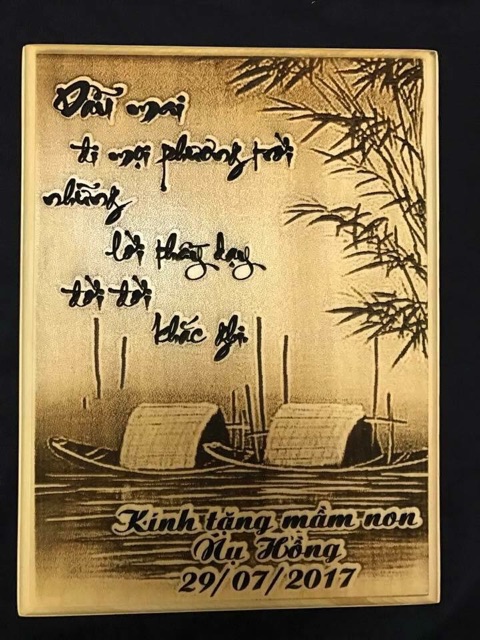 Dẫu mai
đi mọi phương trời
những
lời thầy dạy
đời đời
khắc ghi
Kính tặng mầm non
Nụ Hồng
29/07/2017